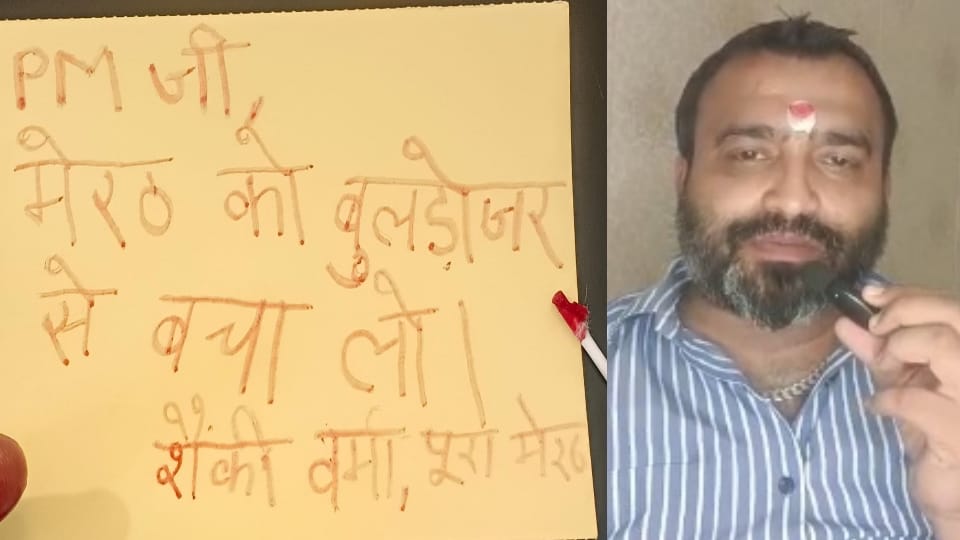 PM जी,
मेरठ को बुलडोजर
से बचा लो।
शैंकी वर्मा, पूरा मेरठ